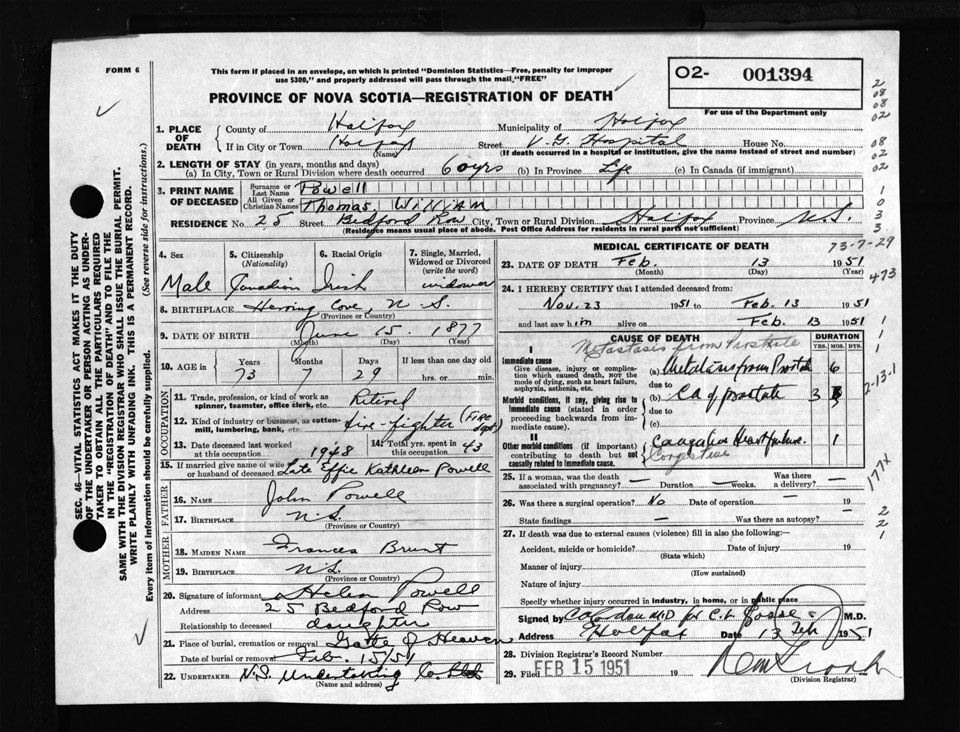 FORM 6
This form if placed in an envelope, on which is printed "Dominion Statistics—Free, penalty for improper
use $300," and properly addressed will pass through the mail, "FREE"
O2- 001394
For use of the Department only
PROVINCE OF NOVA SCOTIA—REGISTRATION OF DEATH
1. PLACE OF DEATH
County of Halifax Municipality of Halifax
If in City or Town Halifax Street V.G Hospital House No.
(Name) (If death occurred in a hospital or institution, give the name instead of street and number)
2. LENGTH OF STAY (in years, months and days)
(a) In City, Town or Rural Division where death occurred 60yrs (b) In Province Life (c) In Canada (if immigrant)
3. PRINT NAME OF DECEASED
Surname or Last Name Powell
All Given or Christian Names Thomas, William
RESIDENCE No. 25 Street Bedford Row City, Town or Rural Division Halifax Province N.S.
(Residence means usual place of abode. Post Office Address for residents in rural parts not sufficient)
4. Sex
Male
5. Citizenship
(Nationality)
Canadian
6. Racial Origin
Irish
7. Single, Married, Widowed or Divorced
(write the word)
widower
8. BIRTHPLACE Herring Cove, N.S.
(Province or Country)
9. DATE OF BIRTH June 15. 1877
(Month) (Day) (Year)
10. AGE in Years Months Days If less than one day old
73 7 29 hrs. or min.
OCCUPATION
11. Trade, profession, or kind of work as
spinner, teamster, office clerk, etc. Retired
12. Kind of industry or business, as cotton-
mill, lumbering, bank, etc. fire-fighter (Fire Dept)
13. Date deceased last worked
at this occupation 1948
14. Total yrs. spent in
this occupation 43
15. If married give name of wife
or husband of deceased Late Effie Kathleen Powell
FATHER
16. NAME John Powell
17. BIRTHPLACE N.S.
(Province or Country)
MOTHER
18. MAIDEN NAME Frances Brunt
19. BIRTHPLACE N.S.
(Province or Country)
20. Signature of informant Helen Powell
Address 25 Bedford Row
Relationship to deceased daughter
21. Place of burial, cremation or removal Gate of Heaven
Date of burial or removal Feb. 15/51
22. UNDERTAKER N.S. Undertaking Co. Ltd
(Name and address)
MEDICAL CERTIFICATE OF DEATH
73-7-29
23. DATE OF DEATH Feb. 13 1951
(Month) (Day) (Year)
24. I HEREBY CERTIFY that I attended deceased from:
Nov. 23 1951 to Feb. 13 1951
and last saw him alive on Feb. 13 1951
CAUSE OF DEATH DURATION
YRS. MOS. DYS.
Metastasis from Prostate
I
Immediate cause
Give disease, injury or complication which caused death, NOT the mode of dying, such as heart failure, asphyxia, asthenia, etc.
(a) Metastasis from Prostate 6
due to
Morbid conditions, if any, giving rise to immediate cause (stated in order proceeding backwards from immediate cause).
(b) CA of prostate 3
due to
(c)
II
Other morbid conditions (if important) contributing to death but not causally related to immediate cause.
Heart failure. 1
Congestive
25. If a woman, was the death
associated with pregnancy? — Duration — weeks. Was there a delivery? —
26. Was there a surgical operation? No Date of operation — 19
State findings — Was there an autopsy?
27. If death was due to external causes (violence) fill in also the following:
Accident, suicide or homicide? Date of injury 19
(State which)
Manner of injury
(How sustained)
Nature of injury
Specify whether injury occurred in industry, in home, or in public place
Signed by M.D.
Address Halifax Date 13 Feb 1951
28. Division Registrar's Record Number
29. Filed FEB 15 1951
(Division Registrar)
SEC. 46—VITAL STATISTICS ACT MAKES IT THE DUTY
OF THE UNDERTAKER OR PERSON ACTING AS UNDER-
TAKER TO OBTAIN ALL THE PARTICULARS REQUIRED
IN THE "REGISTRATION OF DEATH" AND TO FILE THE
SAME WITH THE DIVISION REGISTRAR WHO SHALL ISSUE THE BURIAL PERMIT.
WRITE PLAINLY WITH UNFADING INK. THIS IS A PERMANENT RECORD.
Every item of information should be carefully supplied. (See reverse side for instructions.)
2
08
08
02
08
02
02
1
0
3
3
473
1
1
1
2-13.1
177X
2
2
1